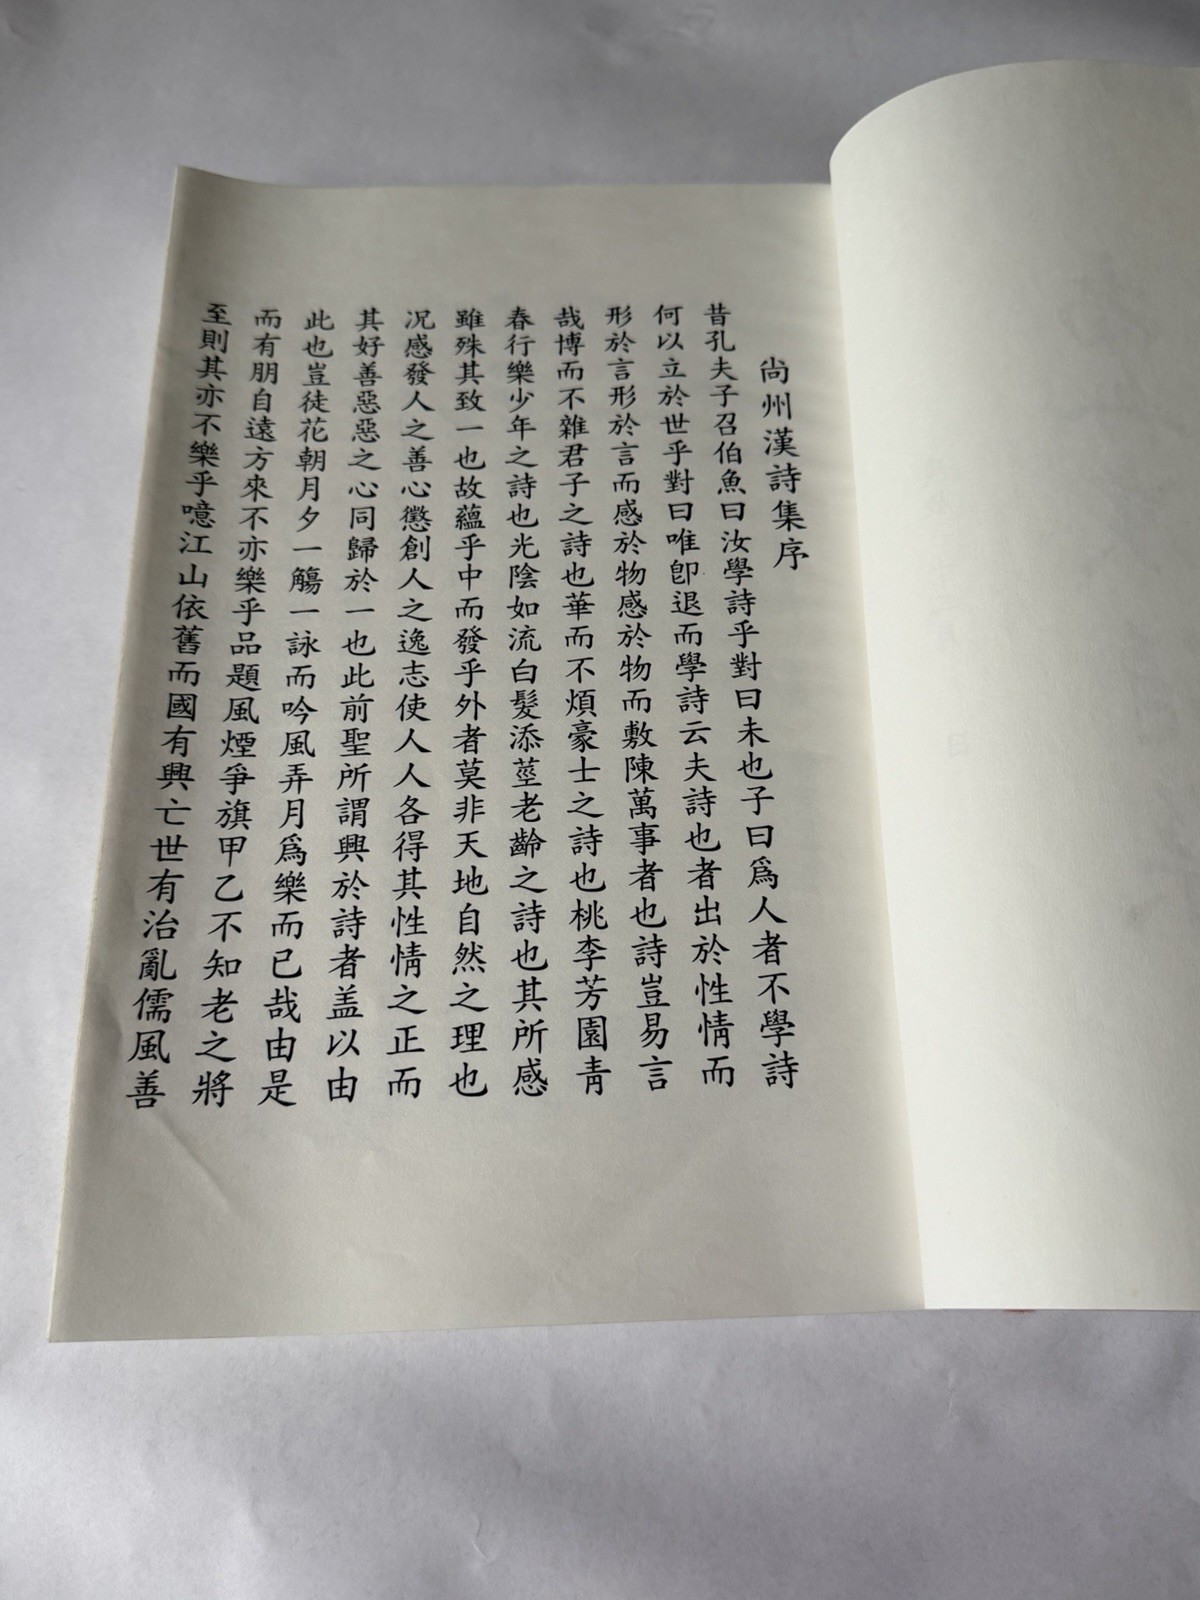 尚州漢詩集序
昔孔夫子召伯魚曰汝學詩乎對曰未也子曰爲人者不學詩
何以立於世乎對曰唯卽退而學詩云夫詩也者出於性情而
形於言形於言而感於物感於物而敷陳萬事者也詩豈易言
哉博而不雜君子之詩也華而不煩豪士之詩也桃李芳園靑
春行樂少年之詩也光陰如流白髮添莖老齡之詩也其所感
雖殊其致一也故蘊乎中而發乎外者莫非天地自然之理也
况感發人之善心懲創人之逸志使人人各得其性情之正而
其好善惡惡之心同歸於一也此前聖所謂興於詩者盖以由
此也豈徒花朝月夕一觴一詠而吟風弄月爲樂而已哉由是
而有朋自遠方來不亦樂乎品題風煙爭旗甲乙不知老之將
至則其亦不樂乎噫江山依舊而國有興亡世有治亂儒風善